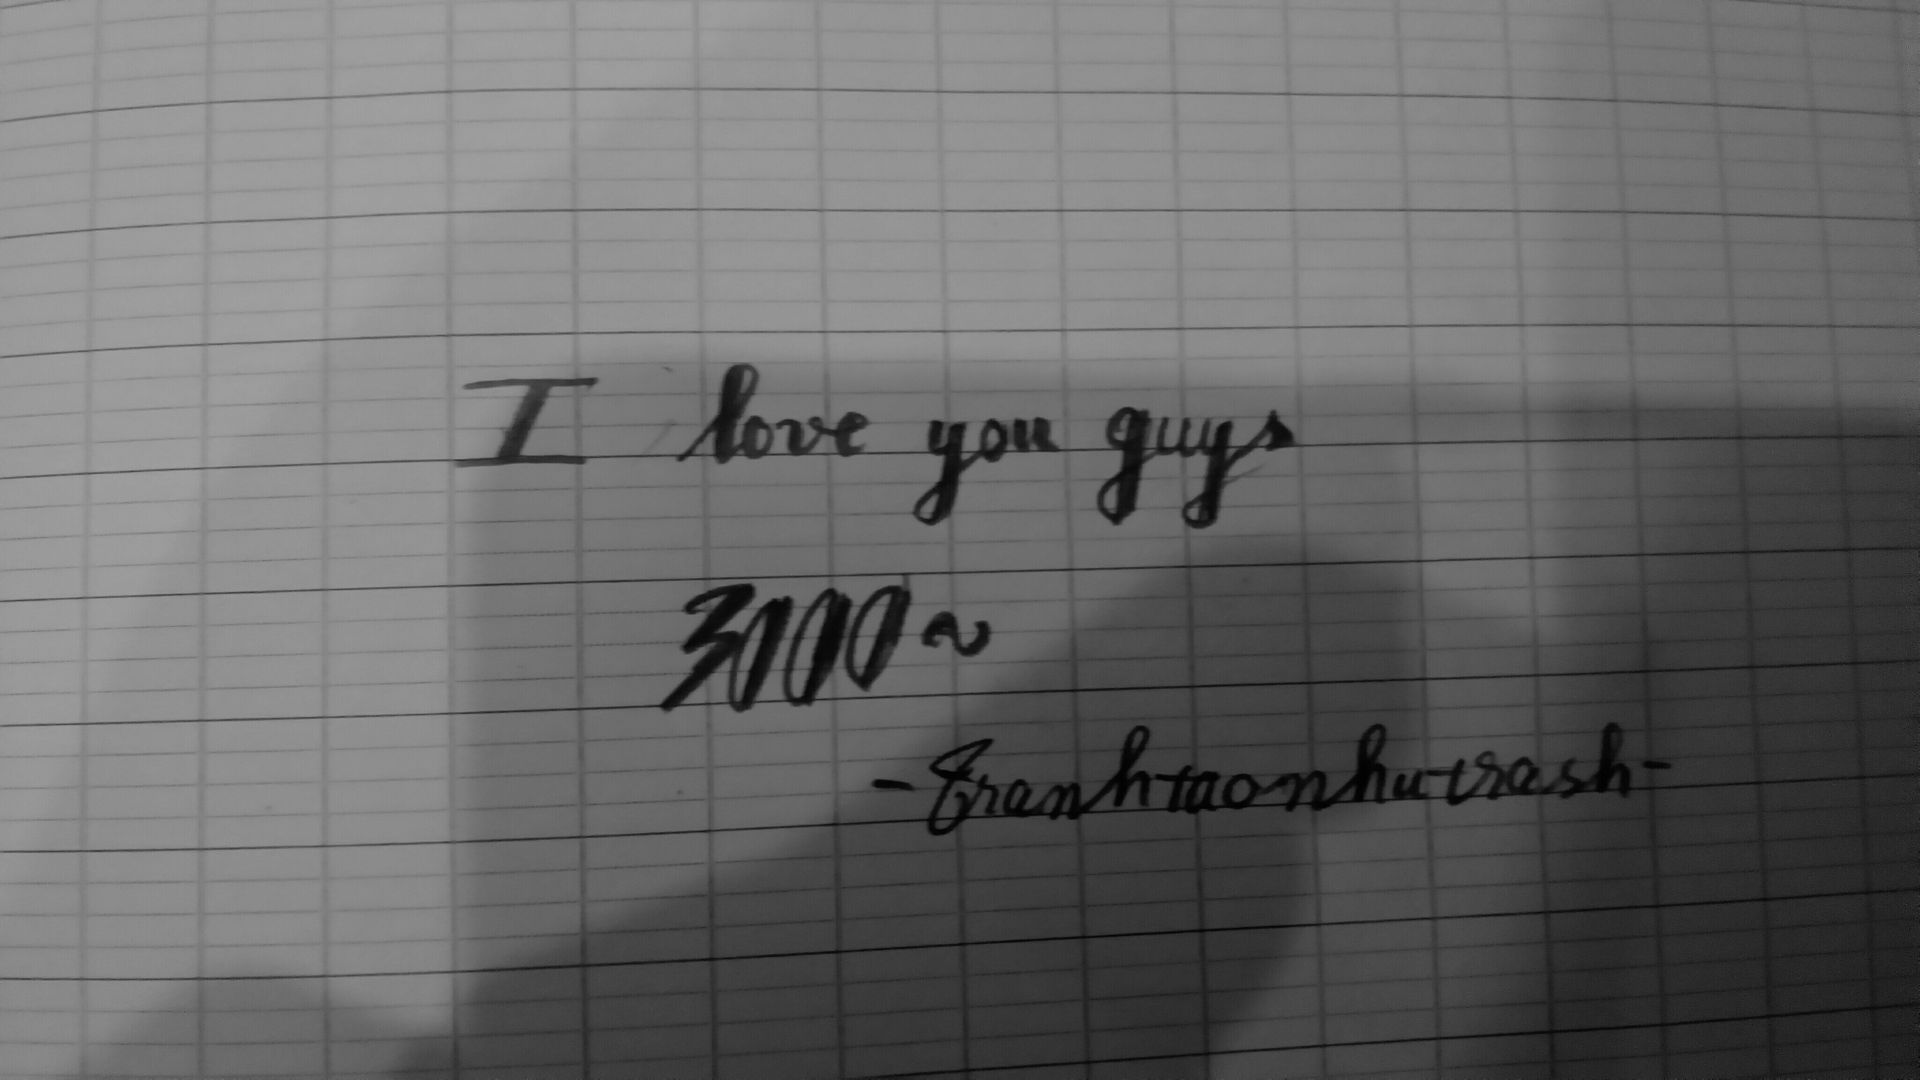 I love you guys
3000~
-Tranhtaonhutrash-